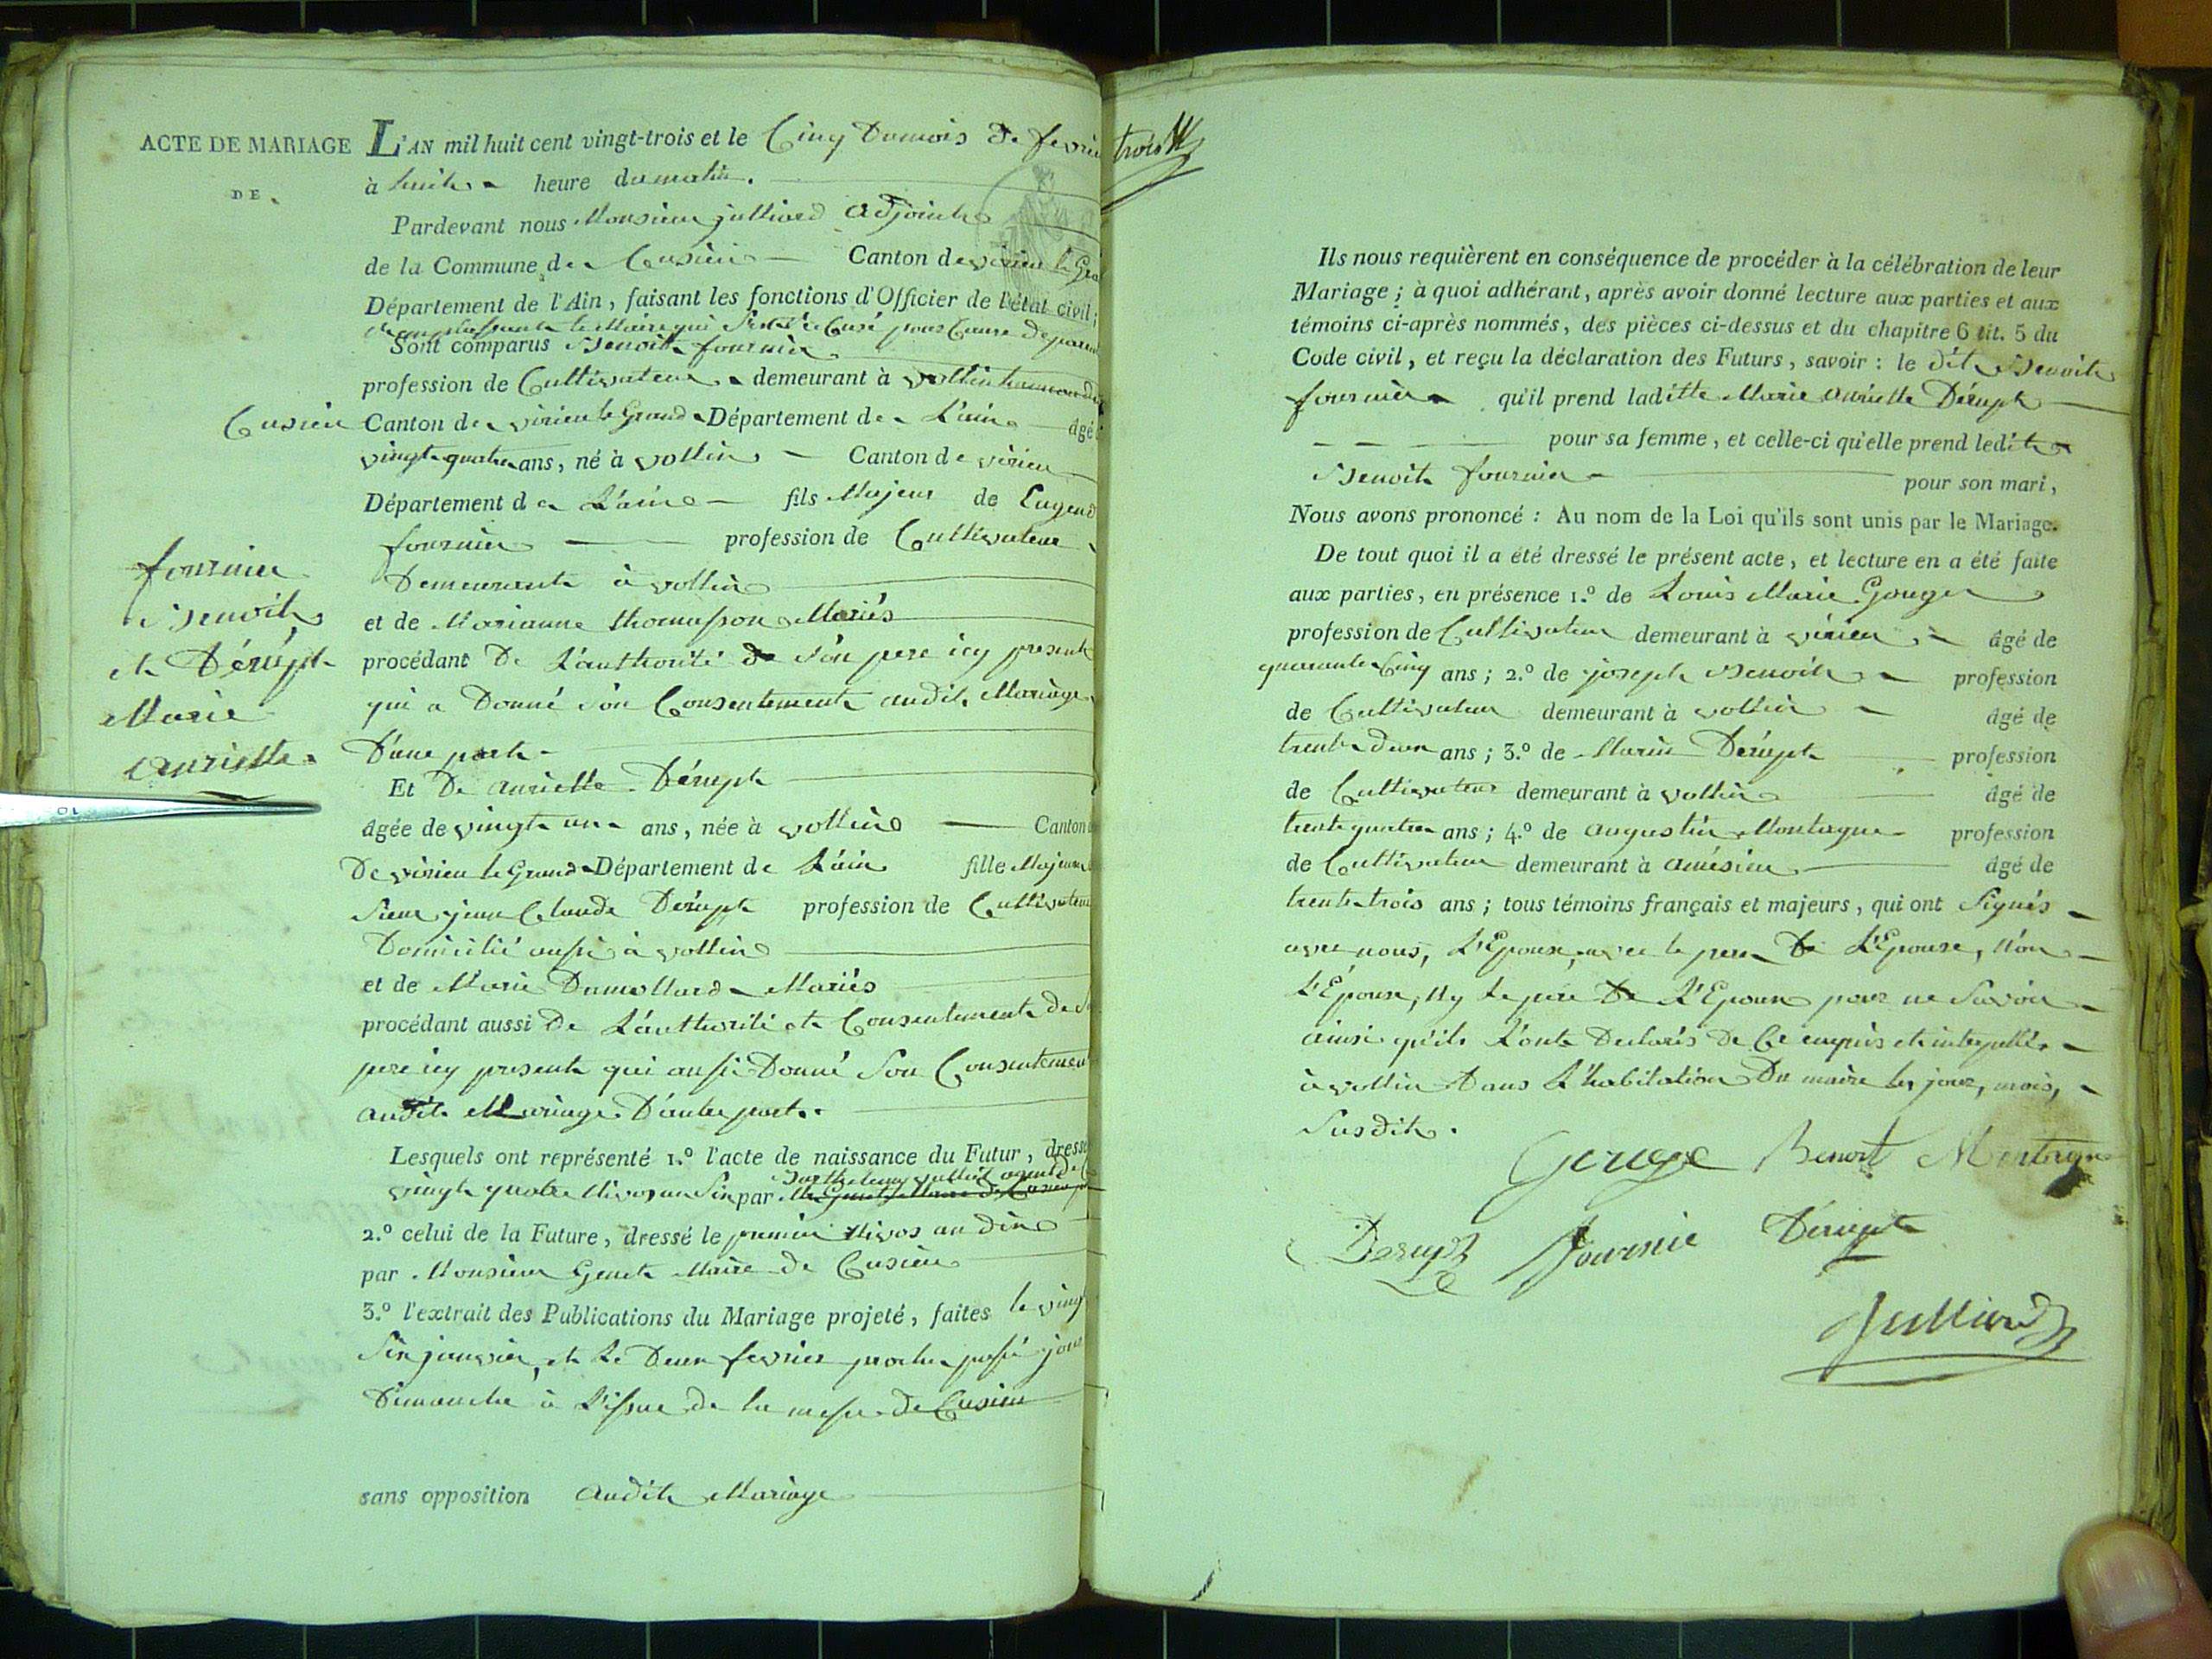 ACTE DE MARIAGE
DE
Cusieu
fournier
Benoit
et Dérupt
Marie
Aurielle
L'AN mil huit cent vingt-trois et le Cinq Dumois De fevrier
à huit heure du matin.
Pardevant nous Monsieur julliard Adjoint
de la Commune de Cusieu Canton de virieu le Grand
Département de l'Ain, faisant les fonctions d'Officier de l'état civil;
le Maire qui S'est récusé pour Cause de
Sont comparus Benoit fournier
profession de Cultivateur demeurant à vollien
Canton de virieu le Grand Département de L'ain âgé
vingt quatre ans, né à vollien Canton de virieu
Département de L'ain fils Majeur de Eugend
fournier profession de Cultivateur
Demeurant à vollien
et de Marianne thomasson Mariés
procédant De L'authorité de Son pere icy present
qui a Donné Son Consentement audit Mariage
D'une part
Et De Aurielle Dérupt
âgée de vingt un ans, née à vollien Canton
De virieu le Grand Département de L'ain fille Majeure
Sieur jean Claude Dérupt profession de Cultivateur
Domicilié aussi à vollien
et de Marie Dumollard Mariés
procédant aussi De L'authorité et Consentement de
pere icy present qui aussi Donné Son Consentement
audit Mariage D'autre part.
Lesquels ont représenté 1.º l'acte de naissance du Futur, dressé
vingt quatre Nivos an Six par
2.º celui de la Future, dressé le premier Nivos an dix
par Monsieur Genet Maire de Cusieu
3.º l'extrait des Publications du Mariage projeté, faites le vingt
Six janvier et Le Deux fevrier proche passé jour
Dimanche à L'issue de la messe de Cusieu
sans opposition audit Mariage
trois
Ils nous requièrent en conséquence de procéder à la célébration de leur
Mariage; à quoi adhérant, après avoir donné lecture aux parties et aux
témoins ci-après nommés, des pièces ci-dessus et du chapitre 6 tit. 5 du
Code civil, et reçu la déclaration des Futurs, savoir: le dit Benoit
fournier qu'il prend laditte Marie aurielle Dérupt
pour sa femme, et celle-ci qu'elle prend ledit
Benoit fournier pour son mari,
Nous avons prononcé: Au nom de la Loi qu'ils sont unis par le Mariage.
De tout quoi il a été dressé le présent acte, et lecture en a été faite
aux parties, en présence 1.º de Louis Marie Gouger
profession de Cultivateur demeurant à virieu âgé de
quarante Cinq ans; 2.º de joseph Benoit profession
de Cultivateur demeurant à vollien âgé de
trente deux ans; 3.º de Marin Dérupt profession
de Cultivateur demeurant à vollien âgé de
trente quatre ans; 4.º de augustin Montagne profession
de Cultivateur demeurant à amézieu âgé de
trente trois ans; tous témoins français et majeurs, qui ont Signés
avec nous, L'Epoux, avec le pere De L'Epouse, Non
L'Épouse, Ny le père De L'Epoux pour ne Savoir
ainsi qu'ils L'ont Declarés De Ce enquis et interpellés
à vollien Dans L'habitation Du maire les jour, mois,
Susdit.
Benoit Montagne
Derupt fournié Dérupt
Julliard